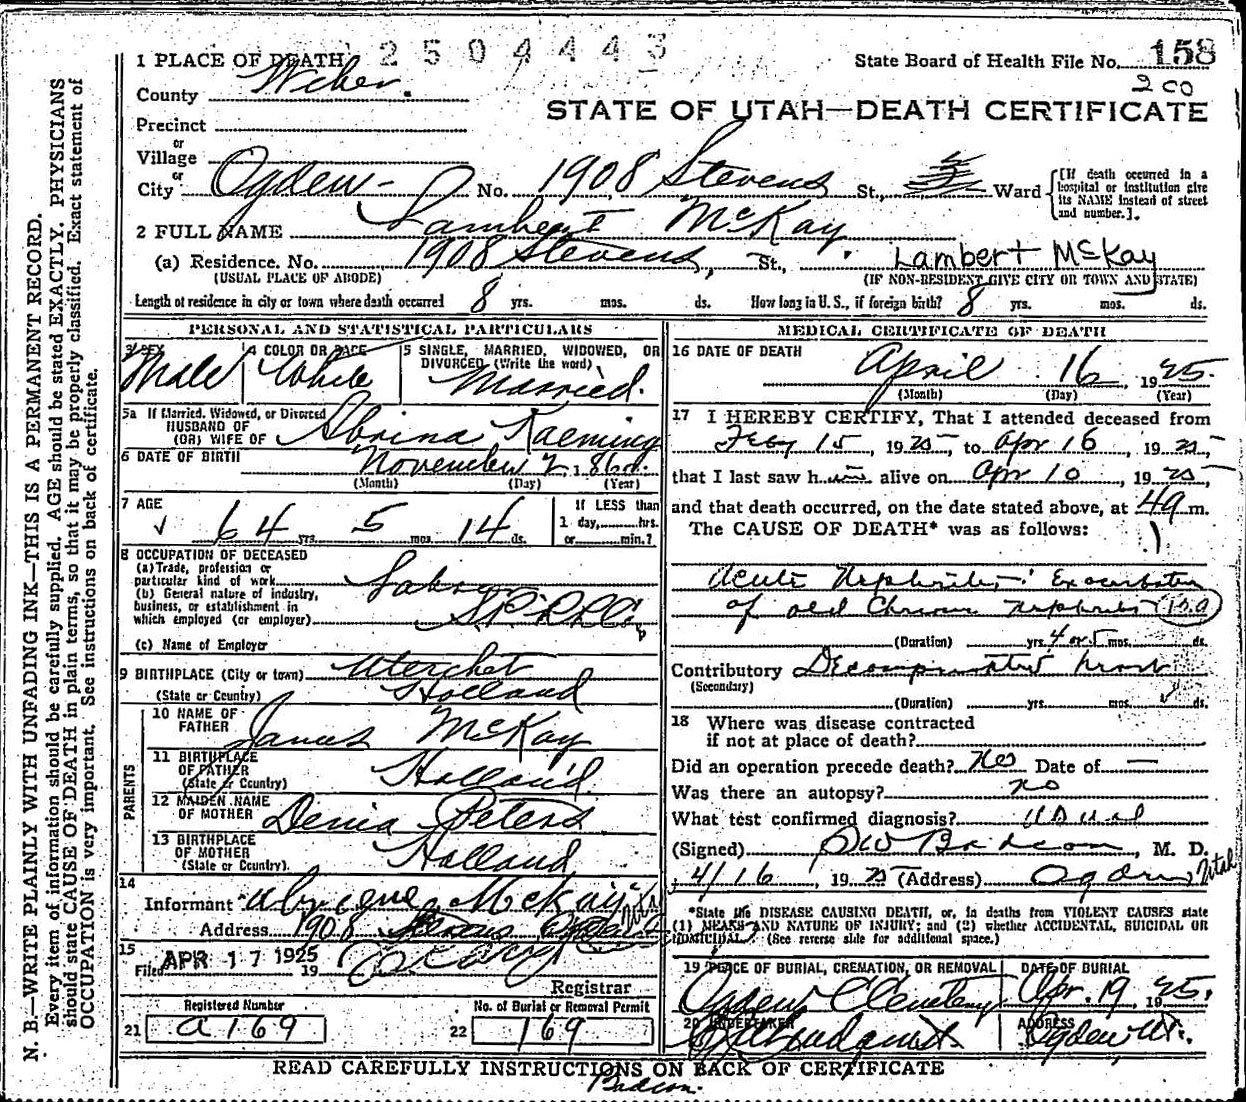 2504443
1 PLACE OF DEATH
State Board of Health File No. 158
200
County Weber.
STATE OF UTAH—DEATH CERTIFICATE
Precinct
or
Village
or
City Ogden - No. 1908 Stevens St., Ward
[If death occurred in a hospital or institution give its NAME instead of street and number.].
2 FULL NAME Lambert McKay.
(a) Residence. No. 1908 Stevens, St., Lambert McKay
(USUAL PLACE OF ABODE) (IF NON-RESIDENT GIVE CITY OR TOWN AND STATE)
Length of residence in city or town where death occurred 8 yrs. mos. ds. How long in U. S., if foreign birth? 8 yrs. mos. ds.
PERSONAL AND STATISTICAL PARTICULARS
3 SEX Male
4 COLOR OR RACE White
5 SINGLE, MARRIED, WIDOWED, OR DIVORCED (Write the word) Married.
5a If Married, Widowed, or Divorced
HUSBAND OF
(OR) WIFE OF
6 DATE OF BIRTH November 2, 1860.
(Month) (Day) (Year)
7 AGE 64 yrs. 5 mos. 14 ds.
If LESS than
1 day, hrs.
or min.?
8 OCCUPATION OF DECEASED
(a) Trade, profession or
particular kind of work Labor
(b) General nature of industry,
business, or establishment in
which employed (or employer)
(c) Name of Employer
9 BIRTHPLACE (City or town) Uterchet
(State or Country) Holland
PARENTS
10 NAME OF FATHER McKay
11 BIRTHPLACE OF FATHER Holland
(State or Country)
12 MAIDEN NAME OF MOTHER Denia Peters
13 BIRTHPLACE OF MOTHER Holland
(State or Country).
14
Informant McKay
Address 1908 Stevens
15
Filed APR 17 1925 19
Registrar
Registered Number
21 a169
No. of Burial or Removal Permit
22 169
MEDICAL CERTIFICATE OF DEATH
16 DATE OF DEATH April 16, 1925.
(Month) (Day) (Year)
17 I HEREBY CERTIFY, That I attended deceased from
Feby 15, 1925 to Apr 16, 1925,
that I last saw him alive on Apr 10, 1925,
and that death occurred, on the date stated above, at m.
The CAUSE OF DEATH* was as follows:
Acute Nephritis: Exacerbation
of old Chronic Nephritis
(Duration) yrs. 4 or 5 mos. ds.
Contributory heart
(Secondary)
(Duration) yrs. mos. ds.
18 Where was disease contracted
if not at place of death?
Did an operation precede death? Date of —
Was there an autopsy? no
What test confirmed diagnosis? Usual
(Signed) Badcon, M. D.
4/16, 1925 (Address) Ogden, Utah
*State the DISEASE CAUSING DEATH, or, in deaths from VIOLENT CAUSES state
(1) MEANS AND NATURE OF INJURY; and (2) whether ACCIDENTAL, SUICIDAL OR
HOMICIDAL. (See reverse side for additional space.)
19 PLACE OF BURIAL, CREMATION, OR REMOVAL Ogden Cemetery
DATE OF BURIAL Apr. 19, 1925.
20 UNDERTAKER
ADDRESS Ogden, Ut.
READ CAREFULLY INSTRUCTIONS ON BACK OF CERTIFICATE
Badcon.
N. B.—WRITE PLAINLY WITH UNFADING INK—THIS IS A PERMANENT RECORD.
Every item of information should be carefully supplied. AGE should be stated EXACTLY. PHYSICIANS
should state CAUSE OF DEATH in plain terms, so that it may be properly classified. Exact statement of
OCCUPATION is very important. See instructions on back of certificate.